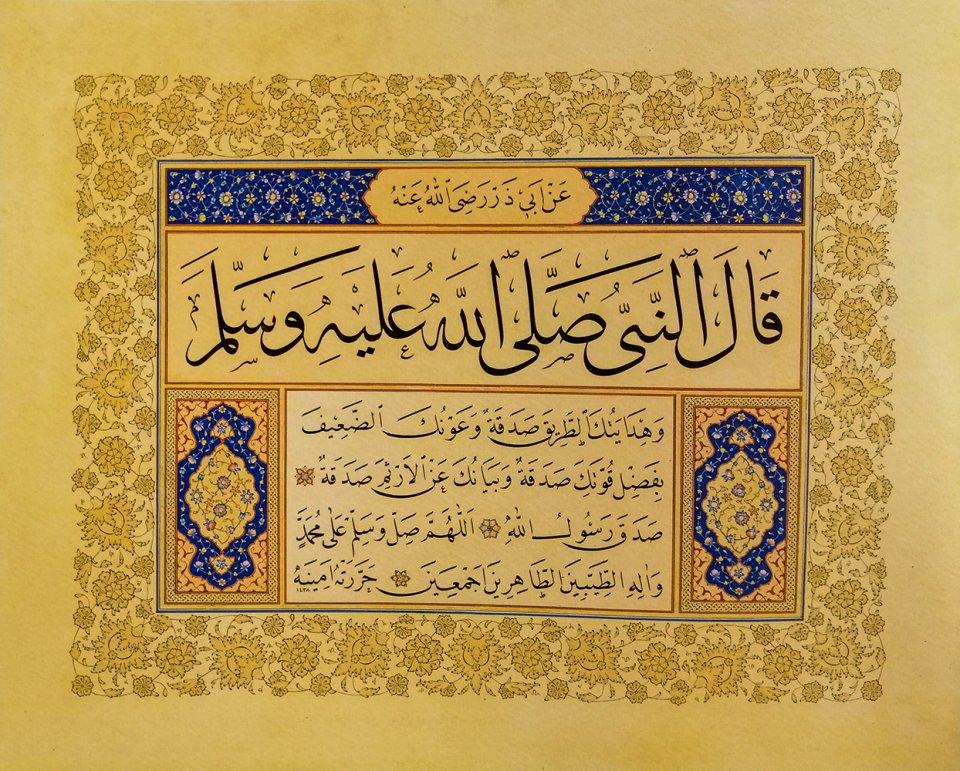 عَنْ اَبِي ذَرٍّ رَضِيَ اللّٰهُ عَنْهُ
قَالَ النَّبِيُّ صَلَّى اللّٰهُ عَلَيْهِ وَسَلَّمَ
وَهِدَايَتُكَ الطَّرِيقَ صَدَقَةٌ وَعَوْنُكَ الضَّعِيفَ
بِفَضْلِ قُوَّتِكَ صَدَقَةٌ وَبَيَانُكَ عَنِ الْاَرْثَمِ صَدَقَةٌ
صَدَقَ رَسُولُ اللّٰهِ اَللّٰهُمَّ صَلِّ وَسَلِّمْ عَلٰى مُحَمَّدٍ
وَاٰلِهِ الطَّيِّبِينَ الطَّاهِرِينَ اَجْمَعِينَ حَرَّرَتْهُ اَمِينَه
١٤٣٨